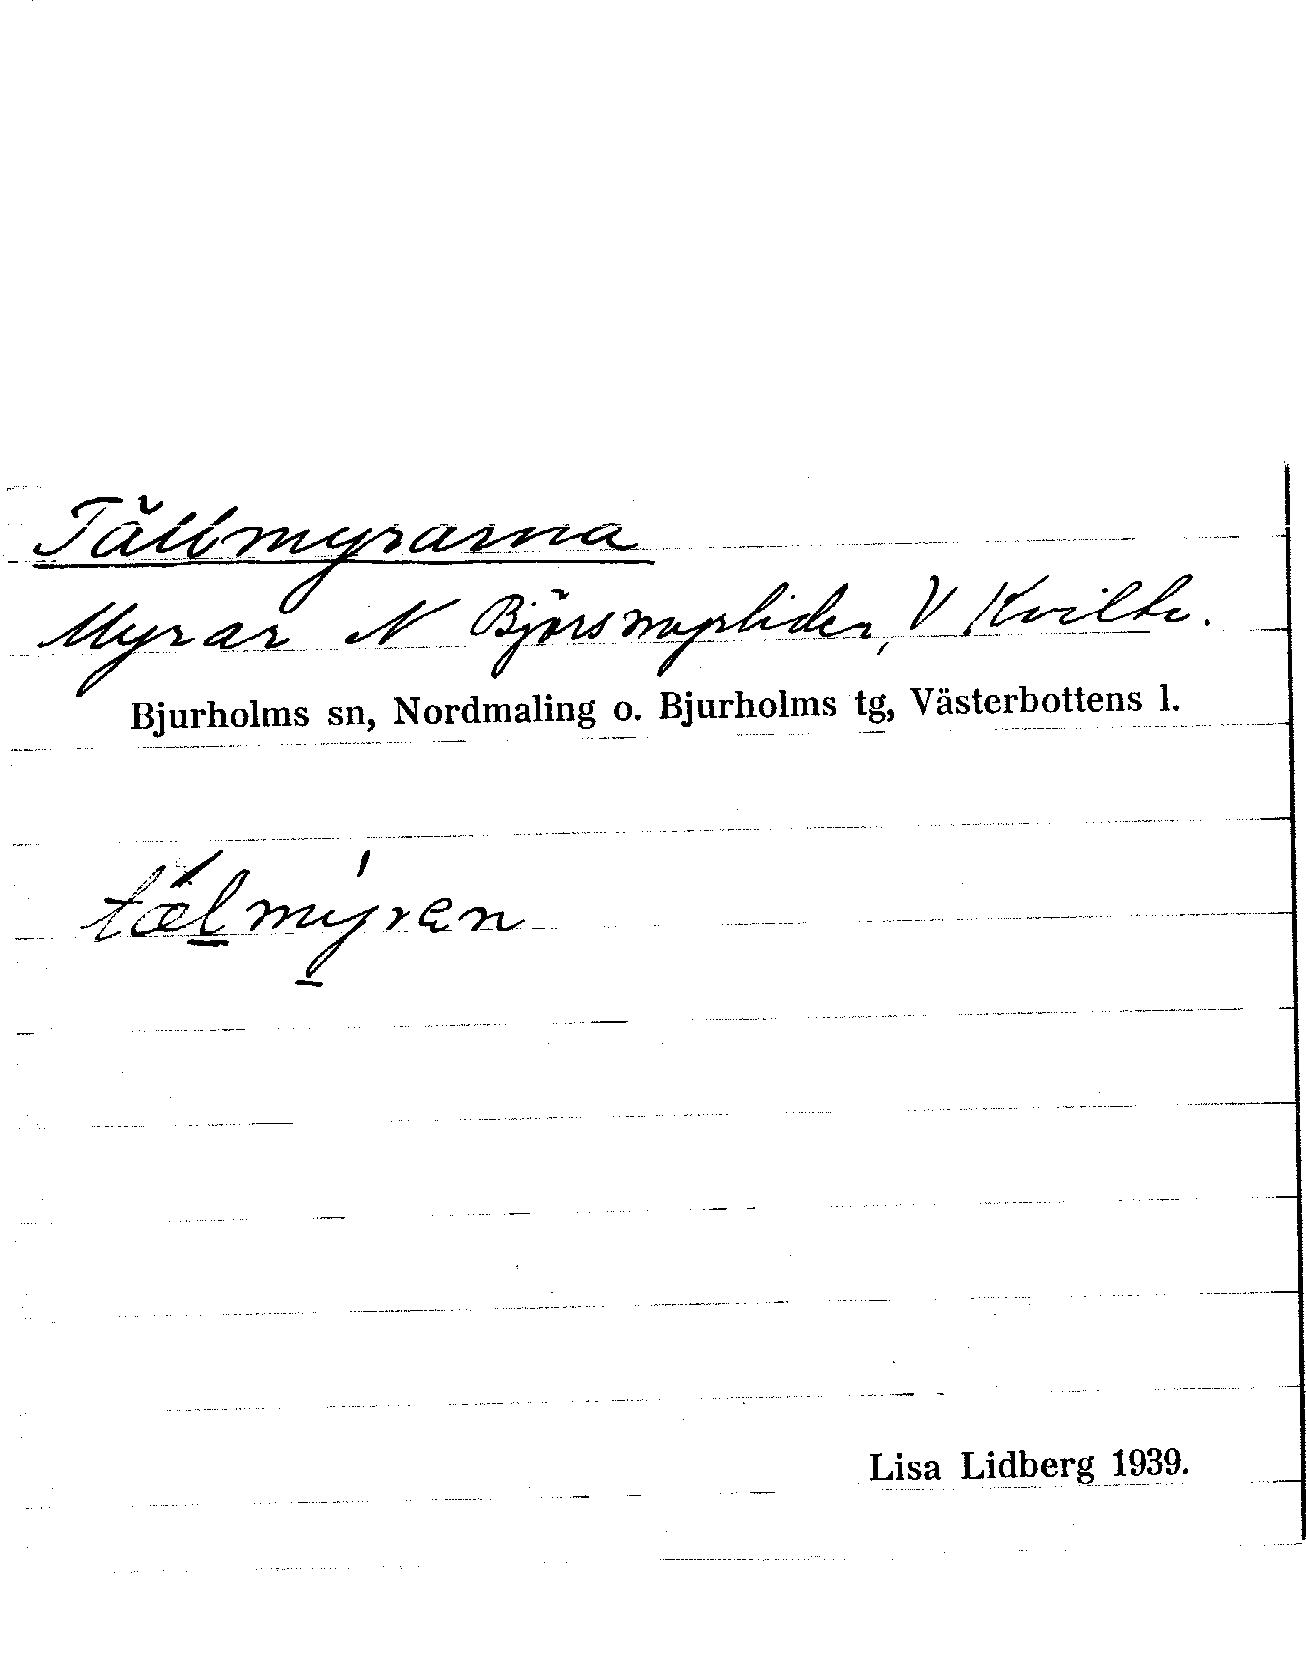 Tällmyrarna
Myrar N Björsmyrliden, V Kvilte.
Bjurholms sn, Nordmaling o. Bjurholms tg, Västerbottens l.
tælmyran
Lisa Lidberg 1939.